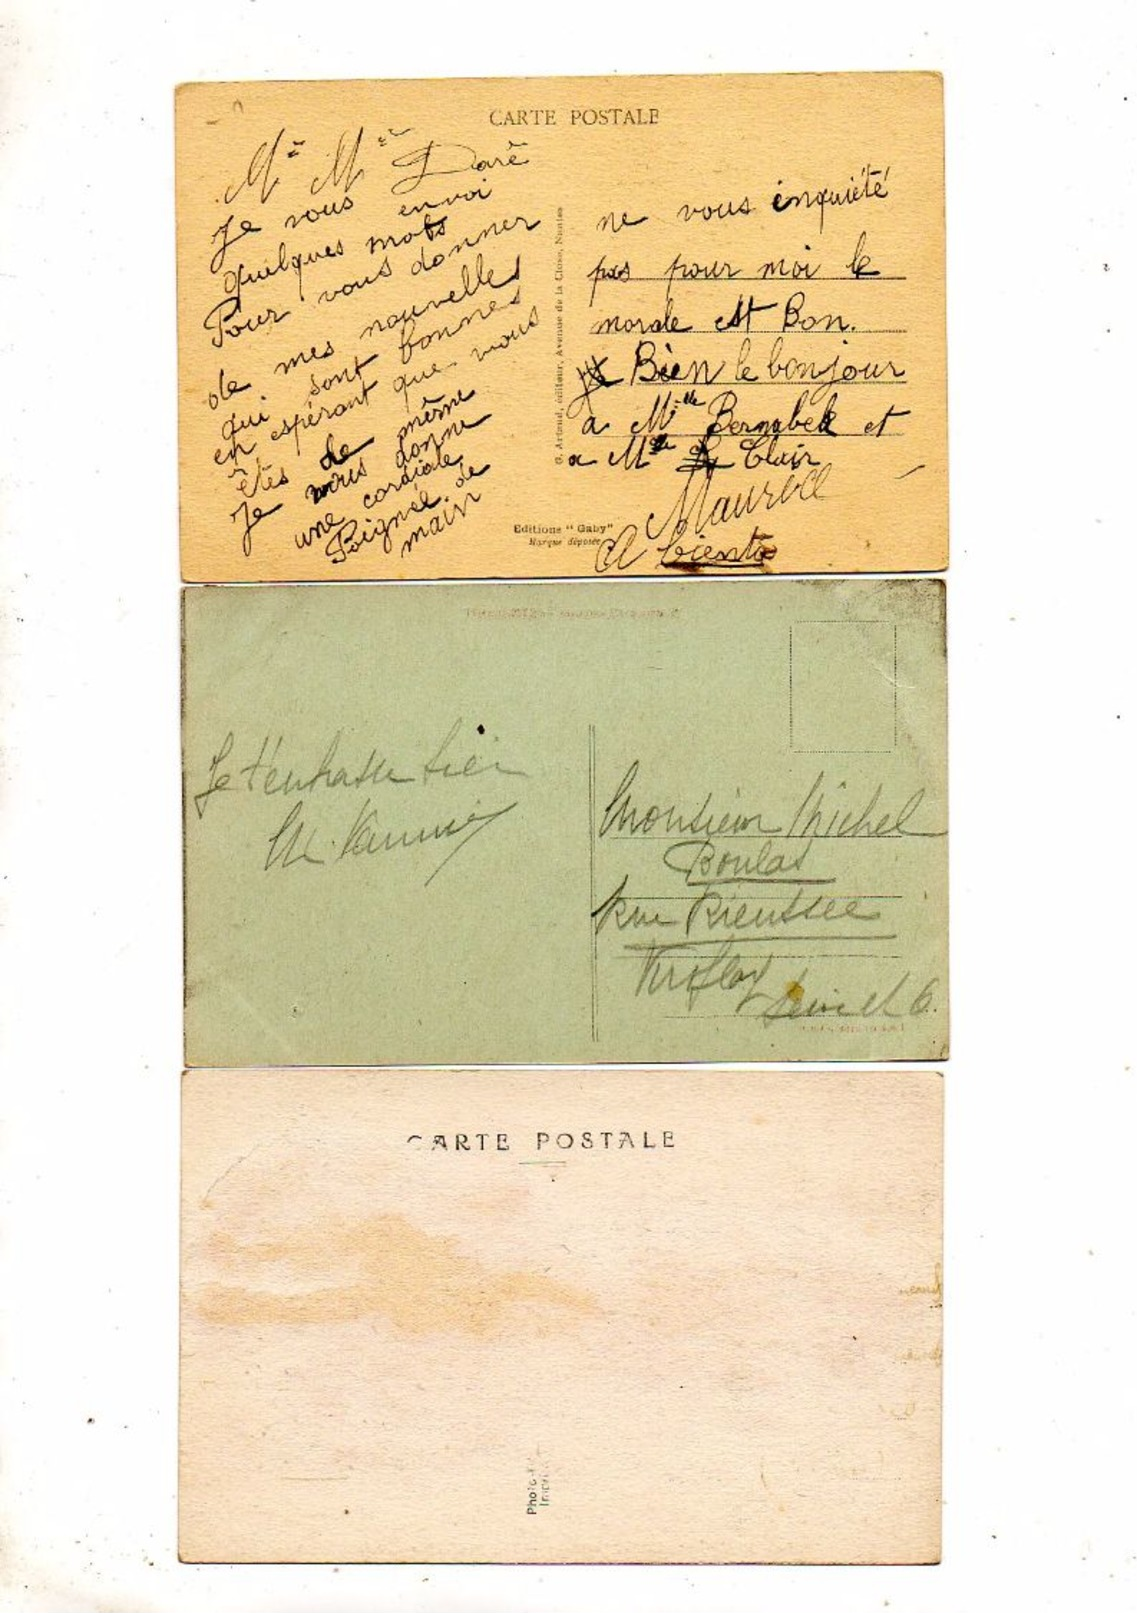 CARTE POSTALE
Mr Mme Daré
Je vous envoi
quelques mots
Pour vous donner
de mes nouvelles
qui sont bonnes
en espérant que vous
êtes de même
Je vous donne
une cordiale
Poignée de
main
G. Artaud, éditeur, Avenue de la Close, Nantes
Editions "Gaby"
Marque déposée
ne vous enquiété
pas pour moi le
morale est Bon.
Bien le bonjour
a Mlle Bernabek et
a Mlle Clair
Maurice
A bientot
Je t'embrasse bien
M.
Monsieur Michel
Boulas
Rue Rieussec
Viroflay
Seine et O.
CARTE POSTALE
Photo